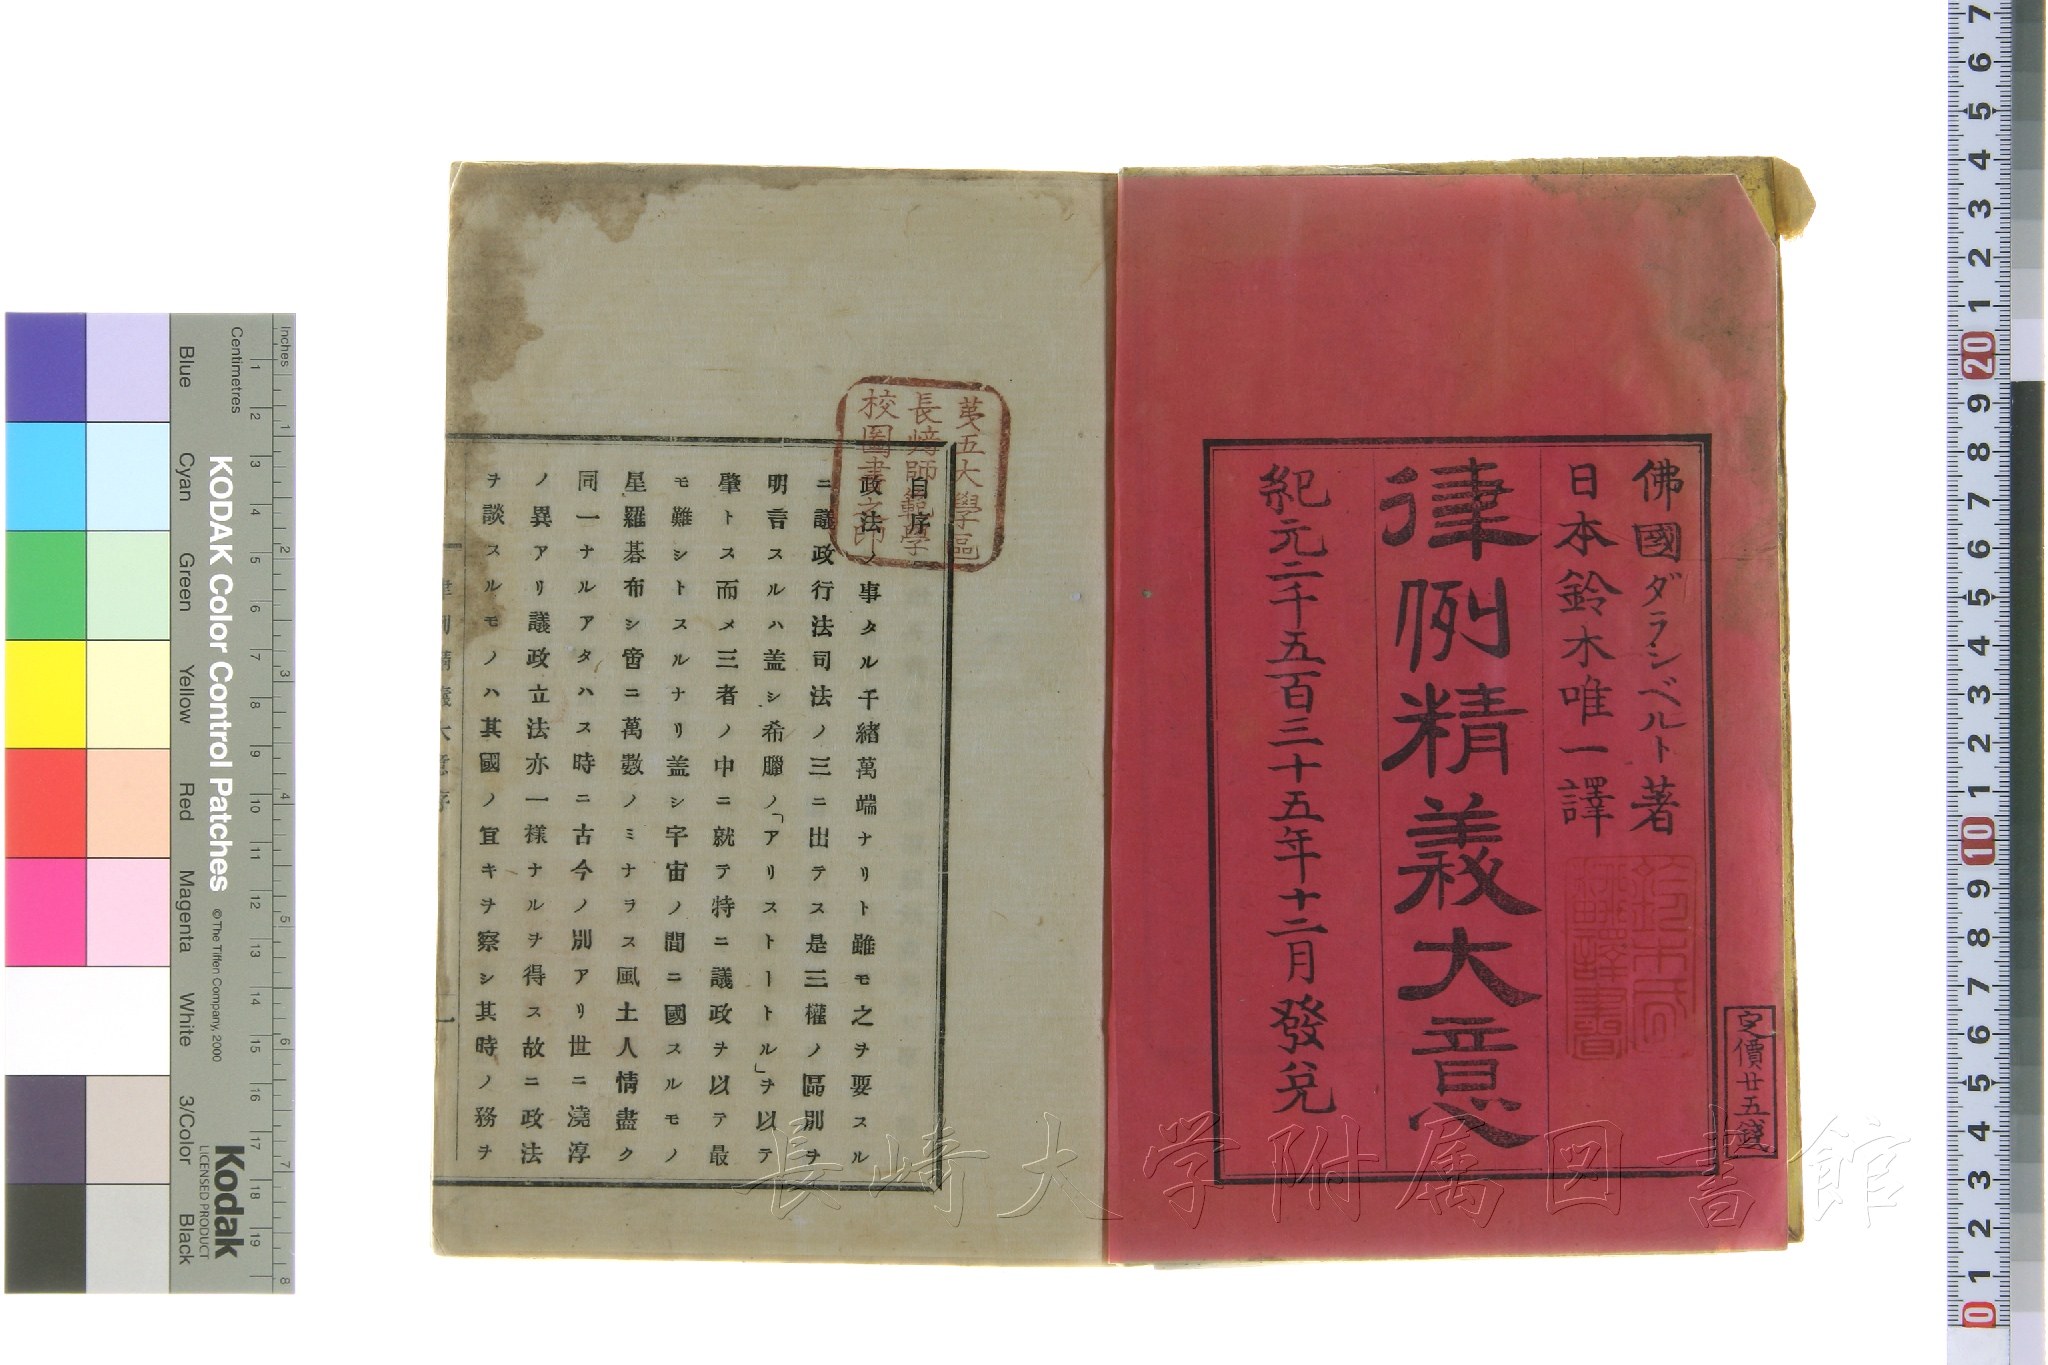 佛國ダランベルト著
日本鈴木唯一譯
律例精義大意
紀元二千五百三十五年十二月發兌
定價廿五錢
第五大學區
長崎師範學
校圖書之印
自序
政法ノ事タル千緒萬端ナリト雖モ之ヲ要スル
ニ議政行法司法ノ三ニ出テス是三權ノ區別ヲ
明言スルハ盖シ希臘ノ「アリストートル」ヲ以テ
肇トス而メ三者ノ中ニ就テ特ニ議政ヲ以テ最
モ難シトスルナリ盖シ宇宙ノ間ニ國スルモノ
星羅碁布シ啻ニ萬數ノミナラス風土人情盡ク
同一ナルアタハス時ニ古今ノ別アリ世ニ澆淳
ノ異アリ議政立法亦一樣ナルヲ得ス故ニ政法
ヲ談スルモノハ其國ノ宜キヲ察シ其時ノ務ヲ
律例精義大意序
一
長崎大学附属図書館
KODAK Color Control Patches
© The Tiffen Company, 2000
Kodak
LICENSED PRODUCT
Inches
Centimetres
Blue
Cyan
Green
Yellow
Red
Magenta
White
3/Color
Black
1 2 3 4 5 6 7 8 9 10 11 12 13 14 15 16 17 18 19
1 2 3 4 5 6 7 8
7 6 5 4 3 2 1 20 9 8 7 6 5 4 3 2 1 10 9 8 7 6 5 4 3 2 1 0